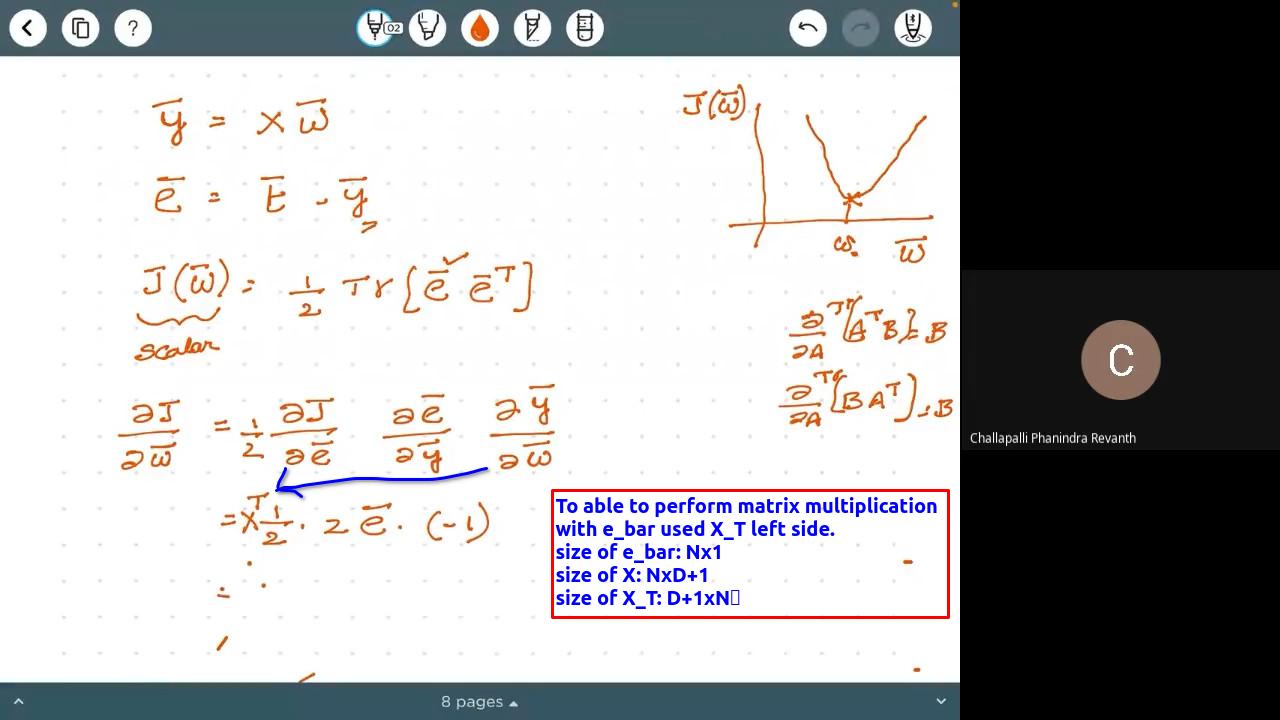 02
y̅ = X w̅
e̅ = t̅ - y̅
J(w̅) = 1/2 Tr[e̅ e̅ᵀ]
scalar
∂J/∂w̅ = 1/2 ∂J/∂e̅ ∂e̅/∂y̅ ∂y̅/∂w̅
= Xᵀ 1/2 . 2 e̅ . (-1)
=
J(w̅)
w̅
∂/∂A Tr[AᵀB] = B
∂/∂A Tr[BAᵀ] = B
To able to perform matrix multiplication
with e_bar used X_T left side.
size of e_bar: Nx1
size of X: NxD+1
size of X_T: D+1xN
8 pages
C
Challapalli Phanindra Revanth